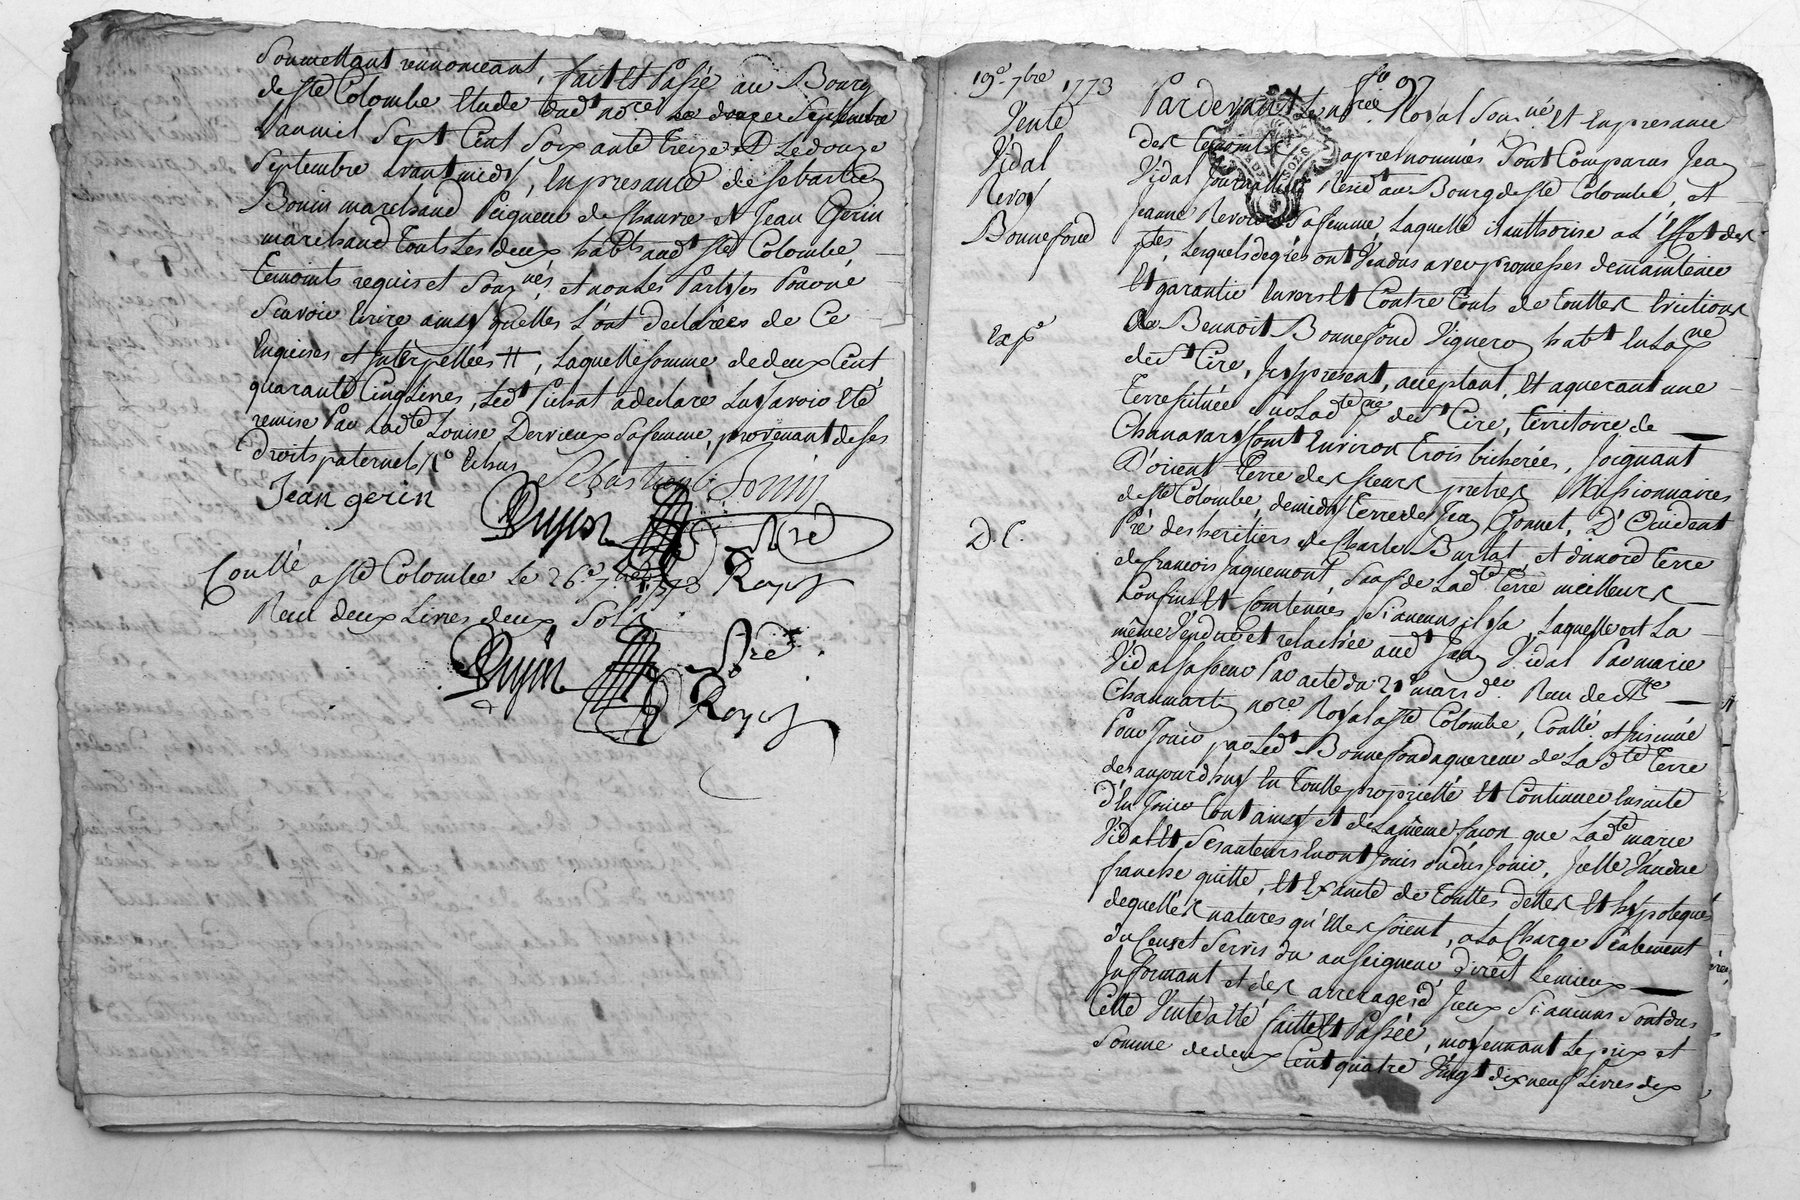 Soumettant rennonceant, fait et Passé au Bourg
de ste Colombe Etude dud. nore. le douze Septembre
L'an mil Sept Cent Soixante treize et Le douze
Septembre avant midy, En presance de sebastien
Bonin marchand Peigneur de Chanvre et Jean Gerin
marchand touts Les deux habts. aud. ste Colombe,
temoints requis et Sousnés, et non Les Parties Pour ne
Scavoir Ecrire ainsy quelles L'ont declarées de Ce
Enquises et Interpellées #, Laquelle somme de deux Cent
quarante Cinq Livres, Ledt. Pichat a declaré Luy avoir Eté
remise Par Ladte. Louise Dervieux Sa femme, provenant de ses
Droits paternels
Jean gerin Sebastien Bonin
Dujin Nre
Roya
Conllé a Ste Colombe Le 26e. 7bre 1773
Reçu deux Livres deux Sols
Dujin Nre.
Roya
19e. 7bre 1773
Vente
Vidal
Revoy
Bonnefond
Exp
D. C.
fo 97
Pardevant Le nore. Royal Sousné. et En presance
des temoints apres nommés sont Comparus Jean
Vidal Journallier Residt. au Bourg de ste Colombe, et
Jeanne Revoy Sa femme, Laquelle il authorise a L'Effet des
ptes, Lesquels de gré ont Vendus avec promesses de maintenir
Et garantir Envers et Contre touts de touttes Evictions
a Bennoit Bonnefond Vigneron habt. En La pne
de st Cire, Icy present, acceptant, et aquerant une
terre située En Ladte. pne de st Cire, territoire de
Chanavary Contt. Environ trois bicherées, Joignant
D'orient terre des sieurs pretres Missionnaires
de ste Colombe, de midy terre de Jean Gonnet, D'Occident
Pré des heritiers de Charle Burlat, et du nord terre
de françois Jaquemont, Sauf de Ladte. terre meilleurs
Confins et Contenües Si aucuns il y a, Laquelle est La
même Vendue et relachée aud. Jean Vidal Par marie
Vidal Sa soeur Par acte du 21 mars der. Reçu de Me
Chaumartin nore Royal a ste Colombe, Conllé. et Insinué
Pour Jouir par Ledt. Bonnefond aquereur de La dte terre
des aujourd'huy En toutte proprietté et Continuer Ensuite
d'En Jouir tout ainsy et de La même façon que Ladte marie
Vidal Et Ses auteurs En ont Jouis ou dus Jouir, Icelle Vendue
franche quitte, et Exante de touttes dettes et hypoteques
de quelles natures qu'Elles soient, a La Charge Seulement
du Cens et Servis du au Seigneur direct Le mieux
Informant et des arrerages d'Iceux Si aucuns Sont dus
Cette Vente a Eté faitte et Passée, moyennant Le prix et
Somme de deux Cent quatre Vingt dix neuf Livres dix